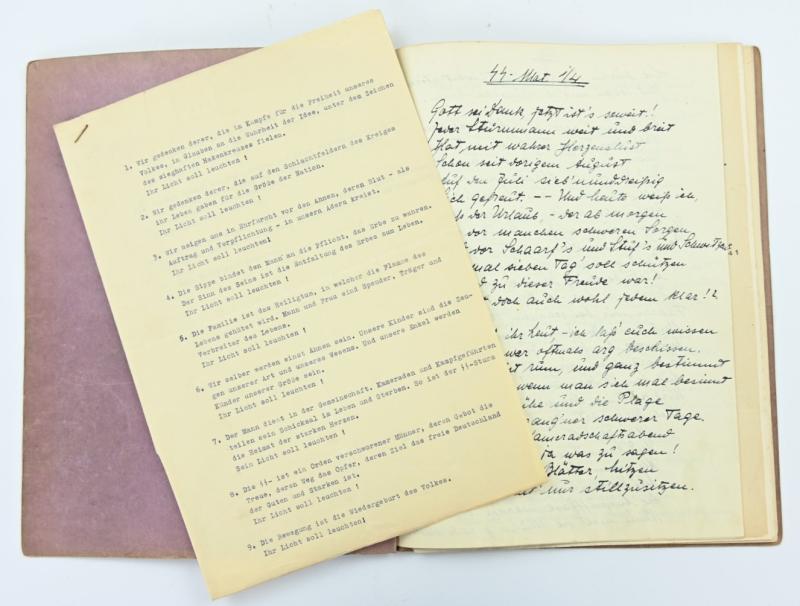 1. Wir gedenken derer, die im Kampfe für die Freiheit unseres
Volkes, im Glauben an die Wahrheit der Idee, unter dem Zeichen
des sieghaften Hakenkreuzes fielen.
Ihr Licht soll leuchten !
2. Wir gedenken derer, die auf den Schlachtfeldern des Krieges
ihr Leben gaben für die Größe der Nation.
Ihr Licht soll leuchten !
3. Wir neigen uns in Ehrfurcht vor den Ahnen, deren Blut - als
Auftrag und Verpflichtung - in unsern Adern kreist.
Ihr Licht soll leuchten!
4. Die Sippe bindet den Mann an die Pflicht, das Erbe zu wahren.
Der Sinn des Seins ist die Entfaltung des Erbes zum Leben.
Ihr Licht soll leuchten !
5. Die Familie ist das Heiligtum, in welcher die Flamme des
Lebens gehütet wird. Mann und Frau sind Spender, Träger und
Verbreiter des Lebens.
Ihr Licht soll leuchten !
6. Wir selber werden einst Ahnen sein. Unsere Kinder sind die Zeu-
gen unserer Art und unseres Wesens. Und unsere Enkel werden
Künder unserer Größe sein.
Ihr Licht soll leuchten !
7. Der Mann dient in der Gemeinschaft. Kameraden und Kampfgefährten
teilen sein Schicksal im Leben und Sterben. So ist der SS-Sturm
die Heimat der starken Herzen.
Sein Licht soll leuchten !
8. Die SS- ist ein Orden verschworener Männer, deren Gebot die
Treue, deren Weg das Opfer, deren Ziel das freie Deutschland
der Guten und Starken ist.
Ihr Licht soll leuchten !
9. Die Bewegung ist die Wiedergeburt des Volkes.
Ihr Licht soll leuchten!
SS-Mat 1/4
Gott sei Dank, jetzt ist's soweit!
Jeder Sturmmann weit und breit
Hat, mit wahrer Herzenslust
Schon seit vorigem August
Auf den Juli sieb'nunddreißig
Sich gefreut. -- Und heute weiß ich,
der Urlaub, - der ab morgen
vor manchen schweren Sorgen
vor Schaarf's und Stuf's und
mal sieben Tag' soll schützen
zu dieser Freude war!
doch auch wohl jedem klar!
ihr heut - ich laß' euch wissen
war oftmals arg beschissen.
rum, und ganz bestimmt
wenn man sich mal besinnt
und die Plage
schwerer Tage.
Kameradschaftsabend
ja was zu sagen!
Blätter,
nur stillzusitzen.